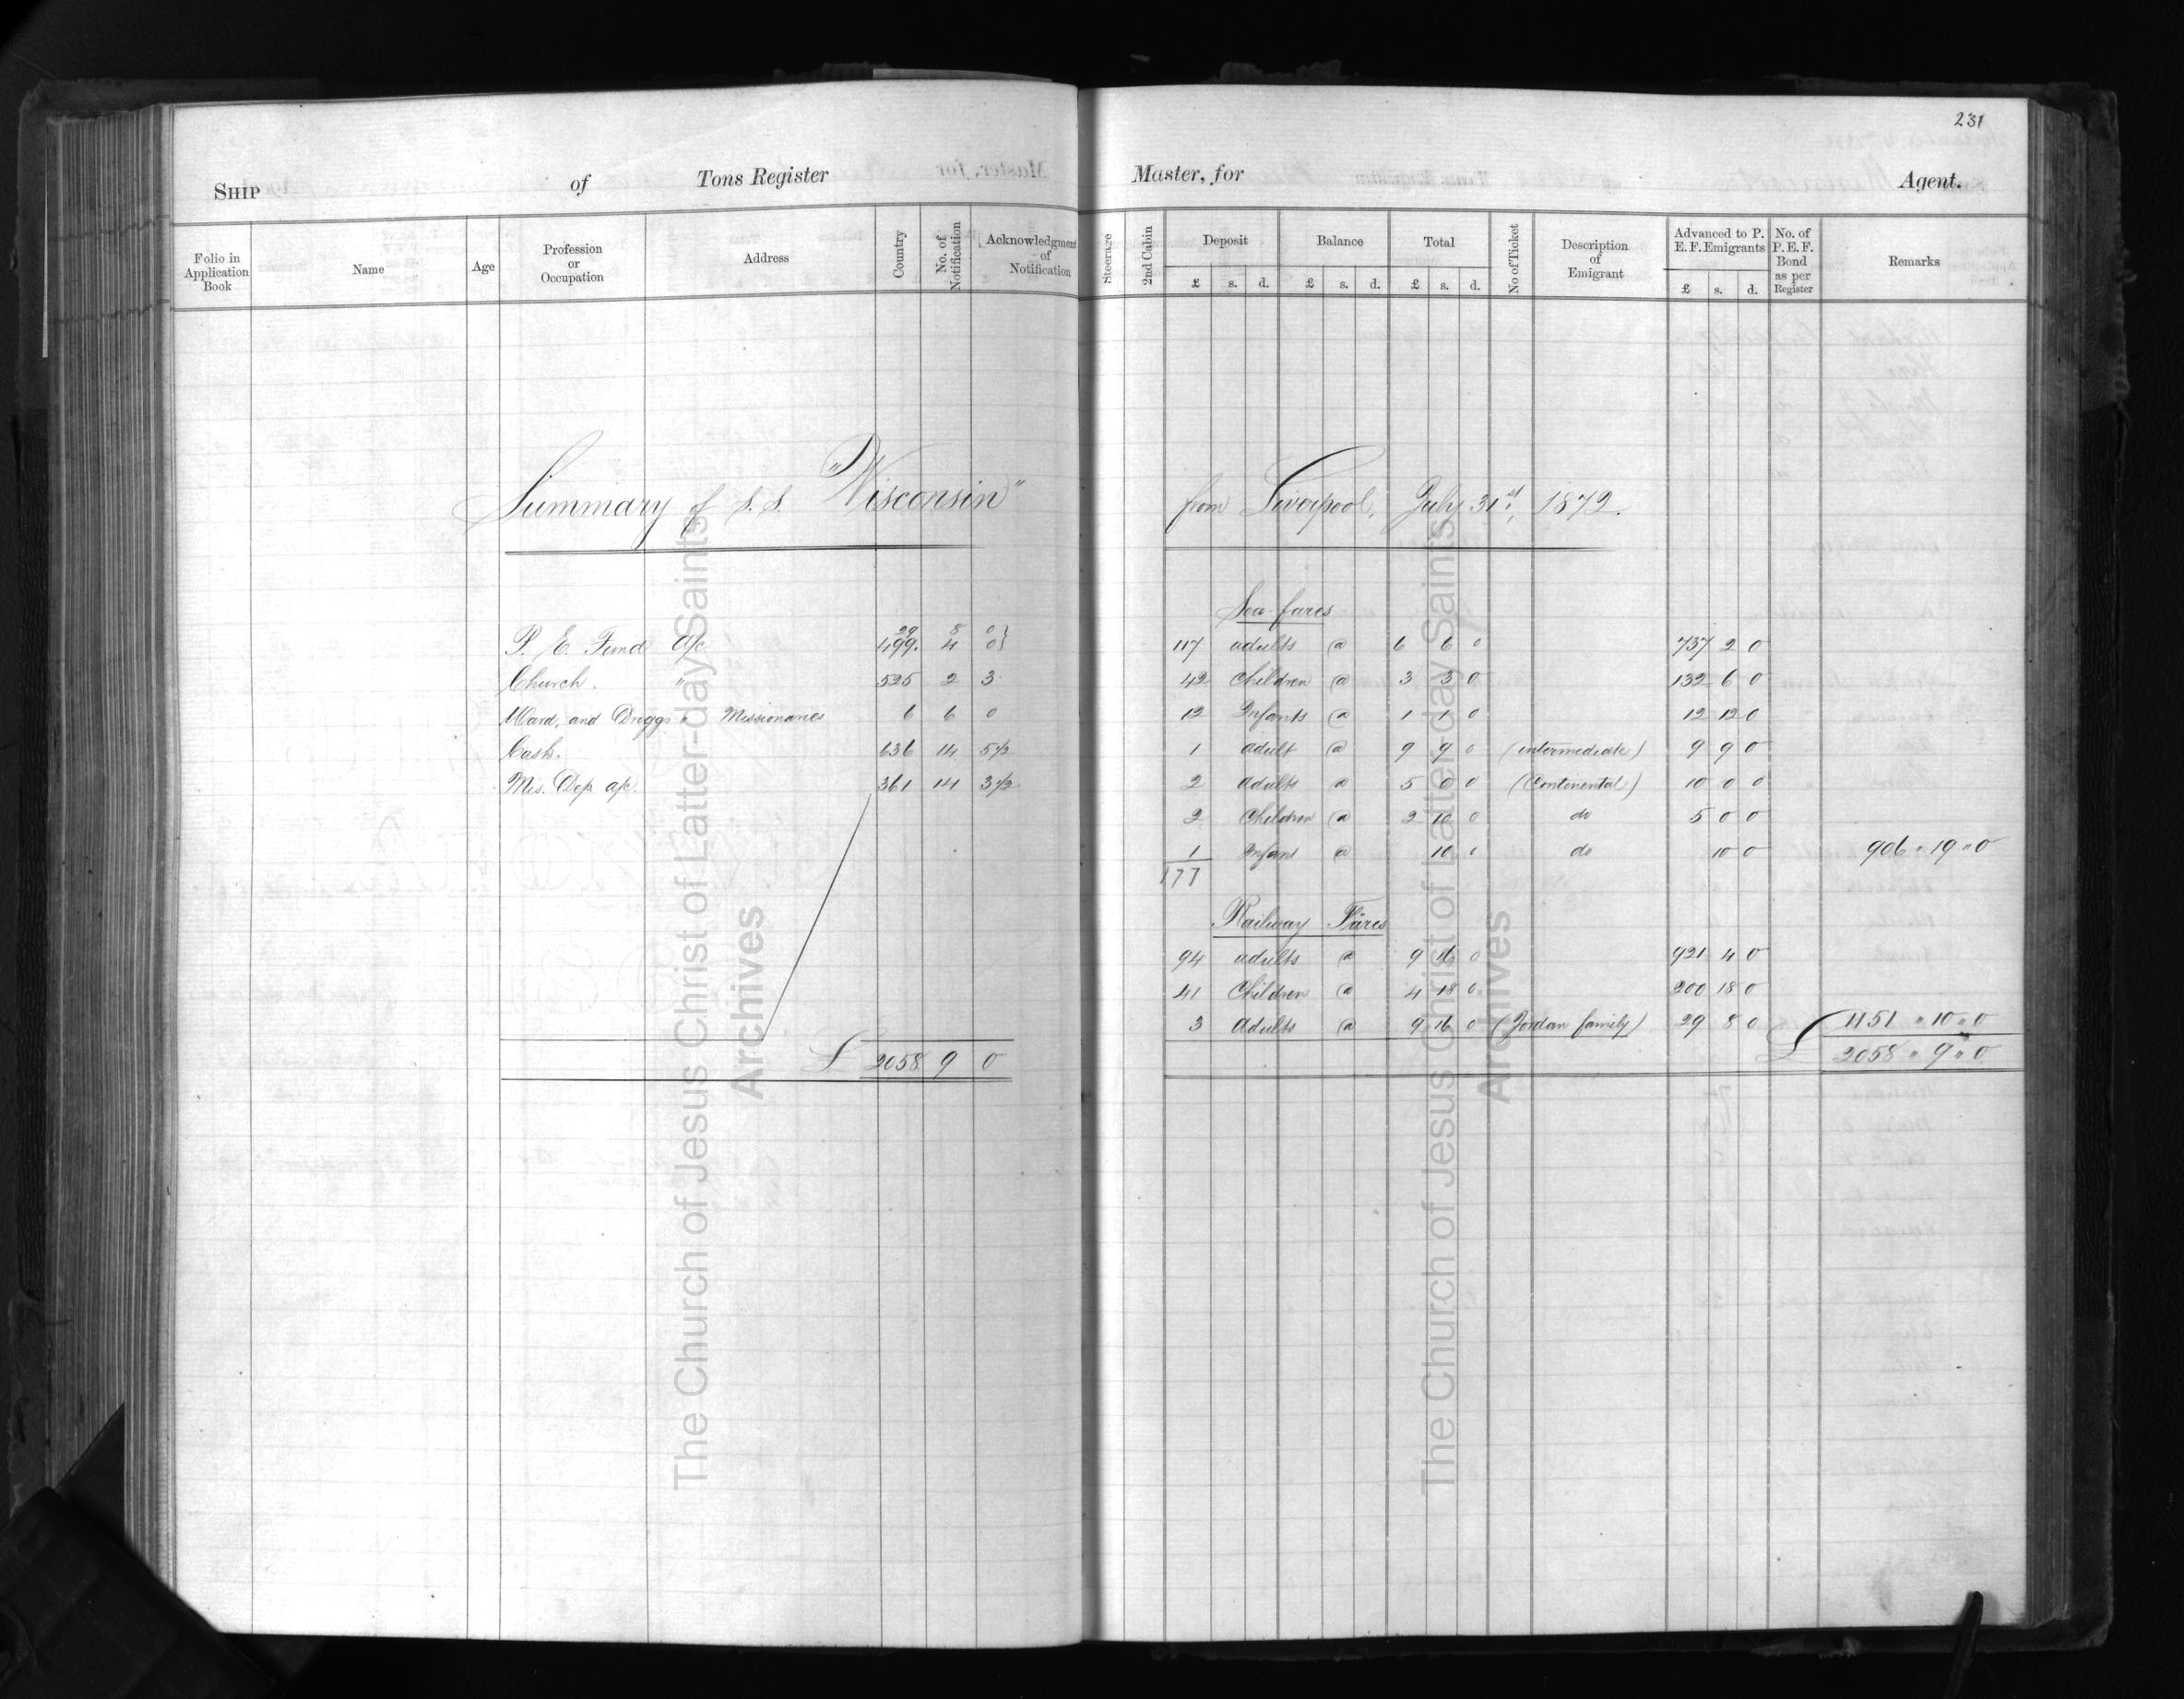 231
SHIP of Tons Register Master, for Agent.
Folio in Application Book Name Age Profession or Occupation Address Country No. of Notification Acknowledgment of Notification Steerage 2nd Cabin Deposit Balance Total No of Ticket Description of Emigrant Advanced to P. E. F. Emigrants No. of P. E. F. Bond as per Register Remarks
£ s. d. £ s. d. £ s. d. £ s. d.
Summary of S.S. "Wisconsin" from Liverpool, July 31st, 1872.
Sea fares
29 8 0}
P. E. Fund a/c 499. 4 0} 117 adults @ 6 6 0 737 2 0
Church. " 525 2 3 42 Children @ 3 3 0 132 6 0
Ward, and Driggs " Missionaries 6 6 0 12 Infants @ 1 1 0 12 12 0
Cash. 636 14 5½ 1 adult @ 9 9 0 (intermediate) 9 9 0
Mis. Dep a/c. 361 14 3½ 2 Adults @ 5 0 0 (Continental) 10 0 0
2 Children @ 2 10 0 do 5 0 0
1 Infant @ 10 0 do 10 0 906 " 19 " 0
177
Railway Fares
94 adults @ 9 16 0 921 4 0
41 Children @ 4 18 0 200 18 0
3 Adults @ 9 16 0 (Jordan family) 29 8 0 1151 " 10 " 0
£ 2058 9 0 £ 2058 " 9 " 0
The Church of Jesus Christ of Latter-day Saints
Archives
The Church of Jesus Christ of Latter-day Saints
Archives